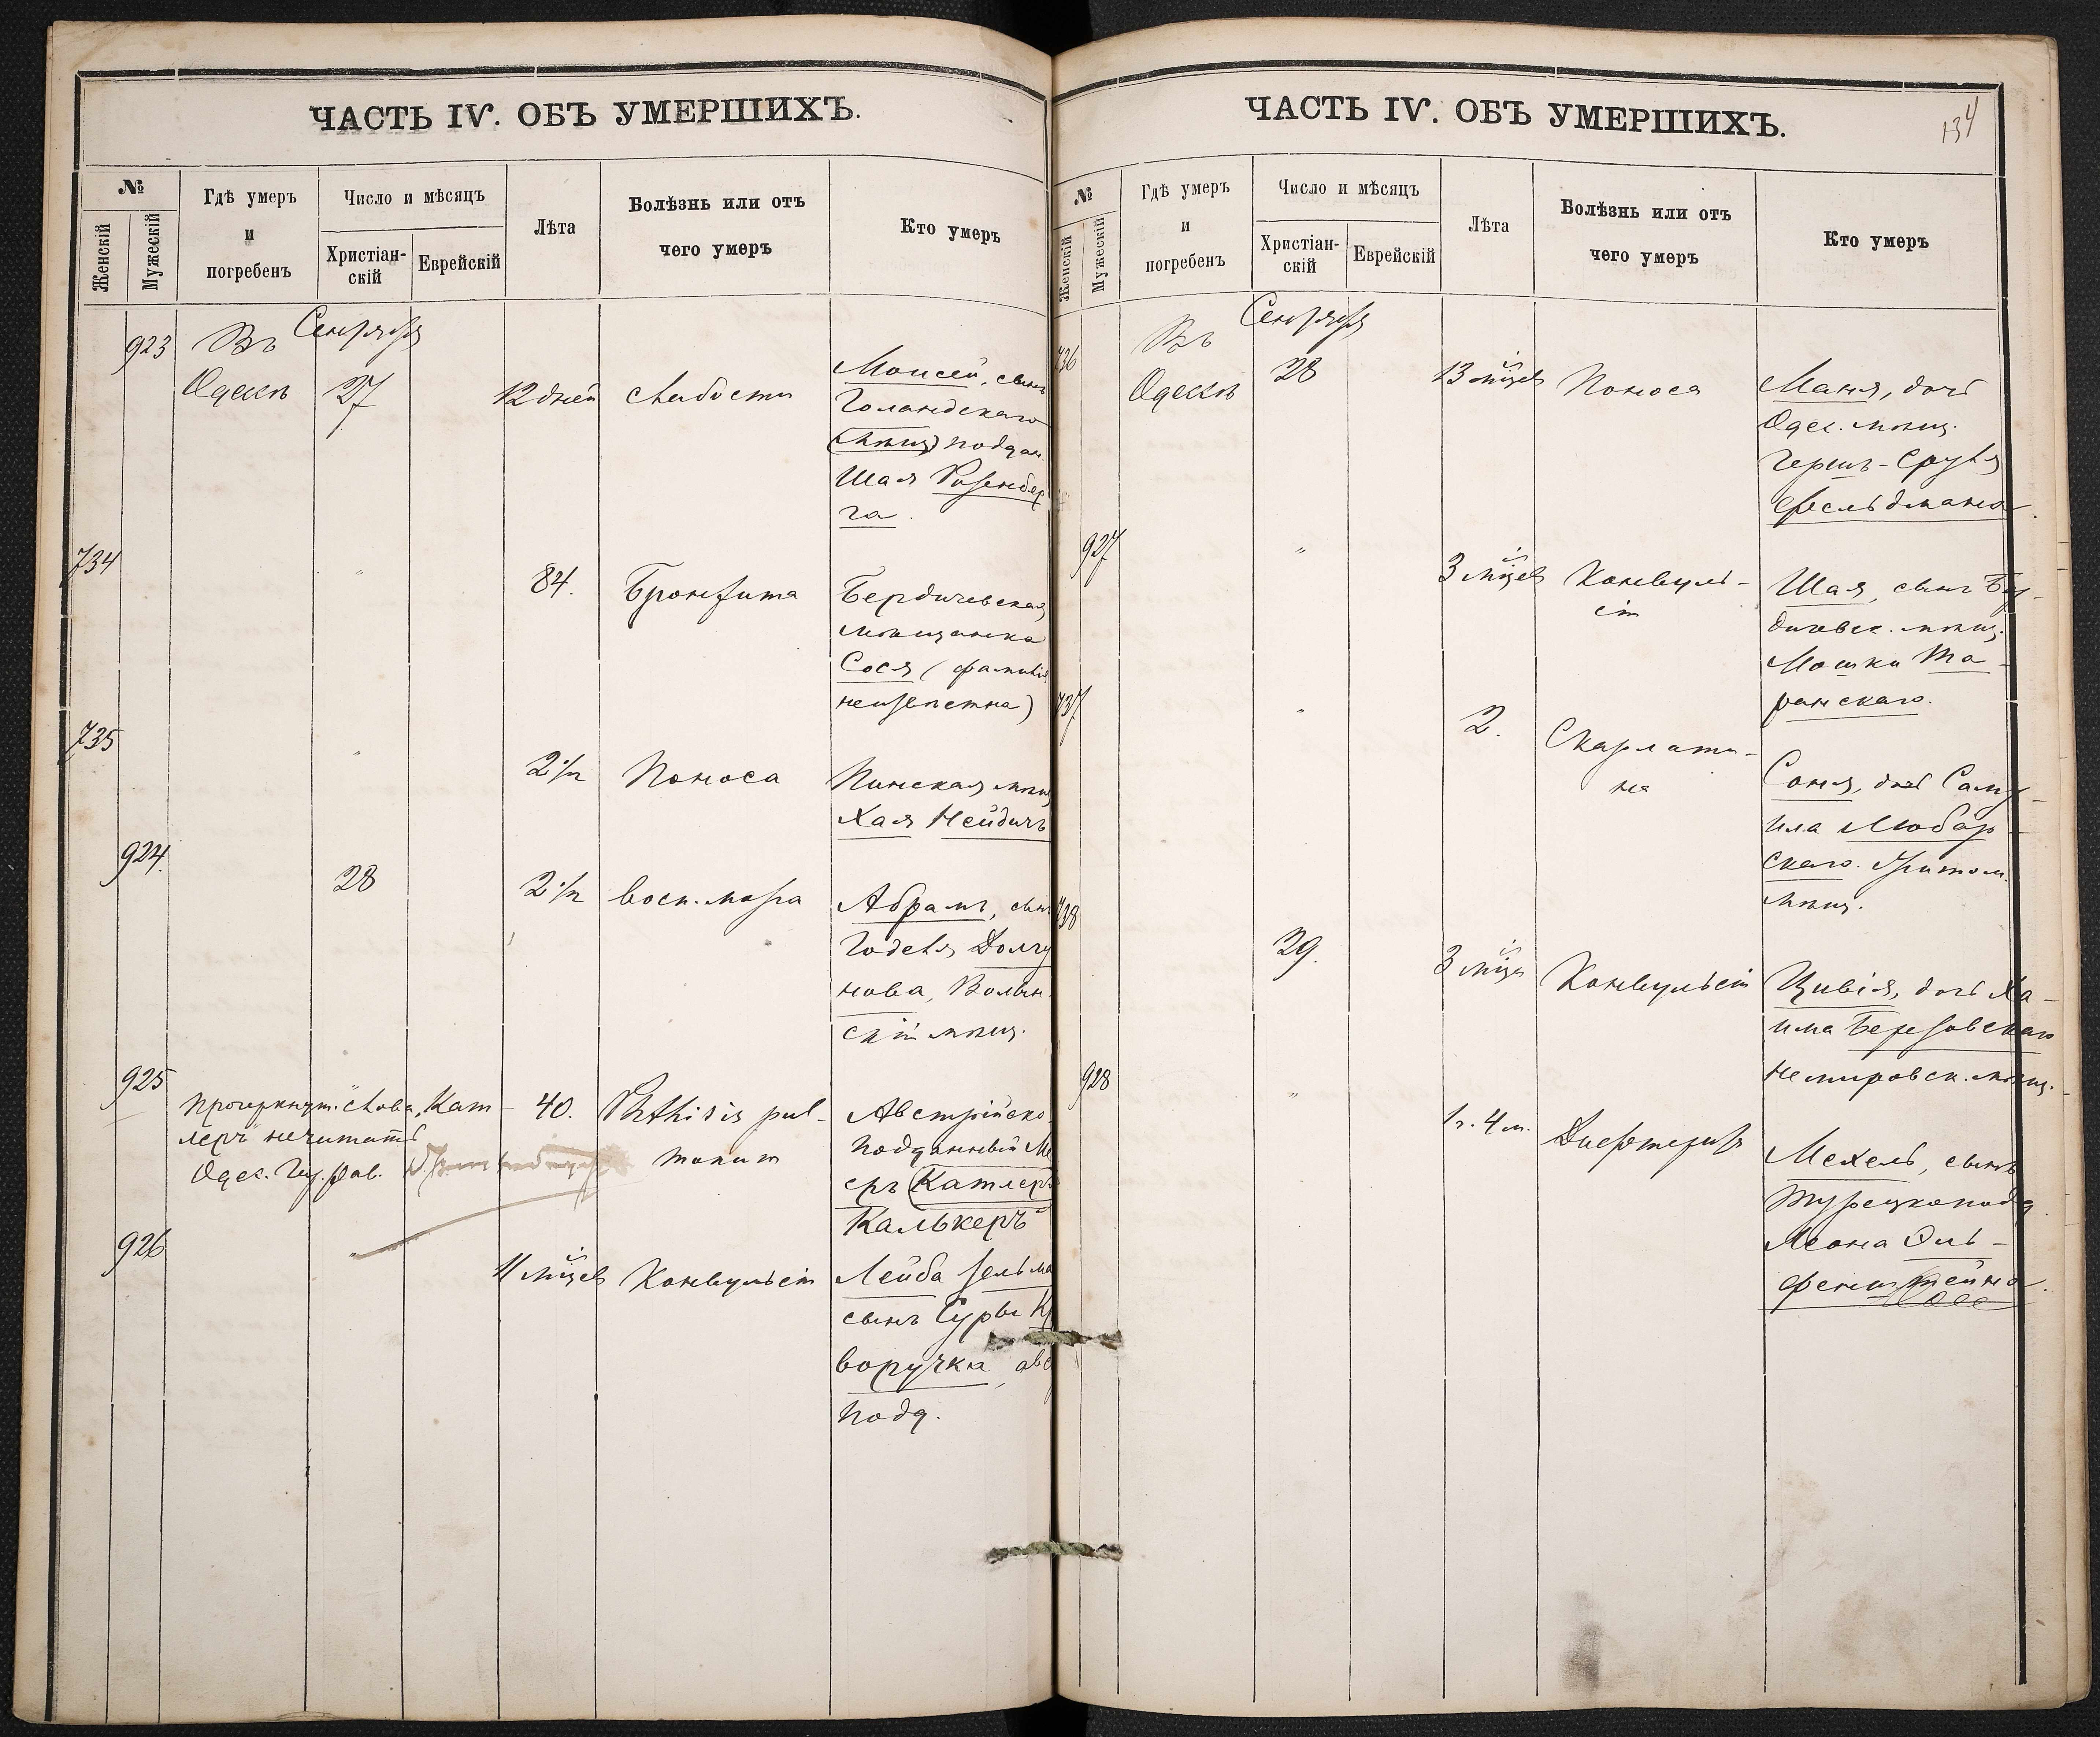 ЧАСТЬ IV. ОБЪ УМЕРШИХЪ.
№
Женскій
Мужескій
Гдѣ умеръ
и
погребенъ
Число и мѣсяцъ
Христіан-
скій
Еврейскій
Лѣта
Болѣзнь или отъ
чего умеръ
Кто умеръ
923 Въ Сентября
Одессѣ 27 12 дней Слабости Моисей, сынъ
Голандскаго
(мѣщ) подан.
Шая Розенбер
га.
734 " 84. Бронхита Бердичевская
мѣщанка
Сося (фамилія
неизвѣстна)
735 " 2½ Поноса Пинская мѣщ
Хая Нейдичъ
924. 28 2½ Восп. мозга Абрамъ, сынъ
Годеля Долгу
нова, Волын
скій мѣщ.
925 40. Phthisis pul- Австрійско
Зачеркнут. слова, Кат
леръ не читать
Одес. Гор. Рав.
подданный Ме
еръ (Катлеръ
Калькеръ
926 " 11 мѣсцев Конвульсіи Лейба Зельма
сынъ Суры К
воручка, авс
подд.
ЧАСТЬ IV. ОБЪ УМЕРШИХЪ.
134
№
Женскій
Мужескій
Гдѣ умеръ
и
погребенъ
Число и мѣсяцъ
Христіан-
скій
Еврейскій
Лѣта
Болѣзнь или отъ
чего умеръ
Кто умеръ
736 Въ Сентября
Одессѣ 28 13 мѣсцев Поноса Маня, дочь
Одес. мѣщ.
Гершъ-Сруля
Фельдмана.
927 " 3 мѣсцев Конвуль- Шая, сынъ Бер-
сіи дичевск. мѣщ.
Мошки Та-
ранскаго.
737 " 2. Скарлати- Соня, дочь Саму-
на ила Любар-
скаго. Житом.
мѣщ.
738 29. 3 мѣсц Конвульсіи Цивія, дочь Ха-
има Березовскаго
Немировск. мѣщ.
928 " 1 г. 4 м. Дифтеритъ Мехель, сынъ
Турецкопод.
Леона Оль-